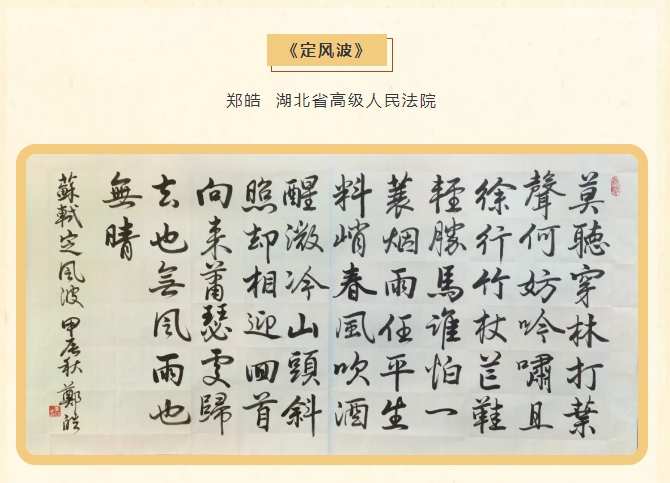 《定风波》
郑皓 湖北省高级人民法院
莫聽穿林打葉
聲何妨吟嘯且
徐行竹杖芒鞋
輕勝馬誰怕一
蓑烟雨任平生
料峭春風吹酒
醒微冷山頭斜
照却相迎回首
向来蕭瑟處歸
去也無風雨也
無晴
蘇軾定風波 甲辰秋 鄭皓